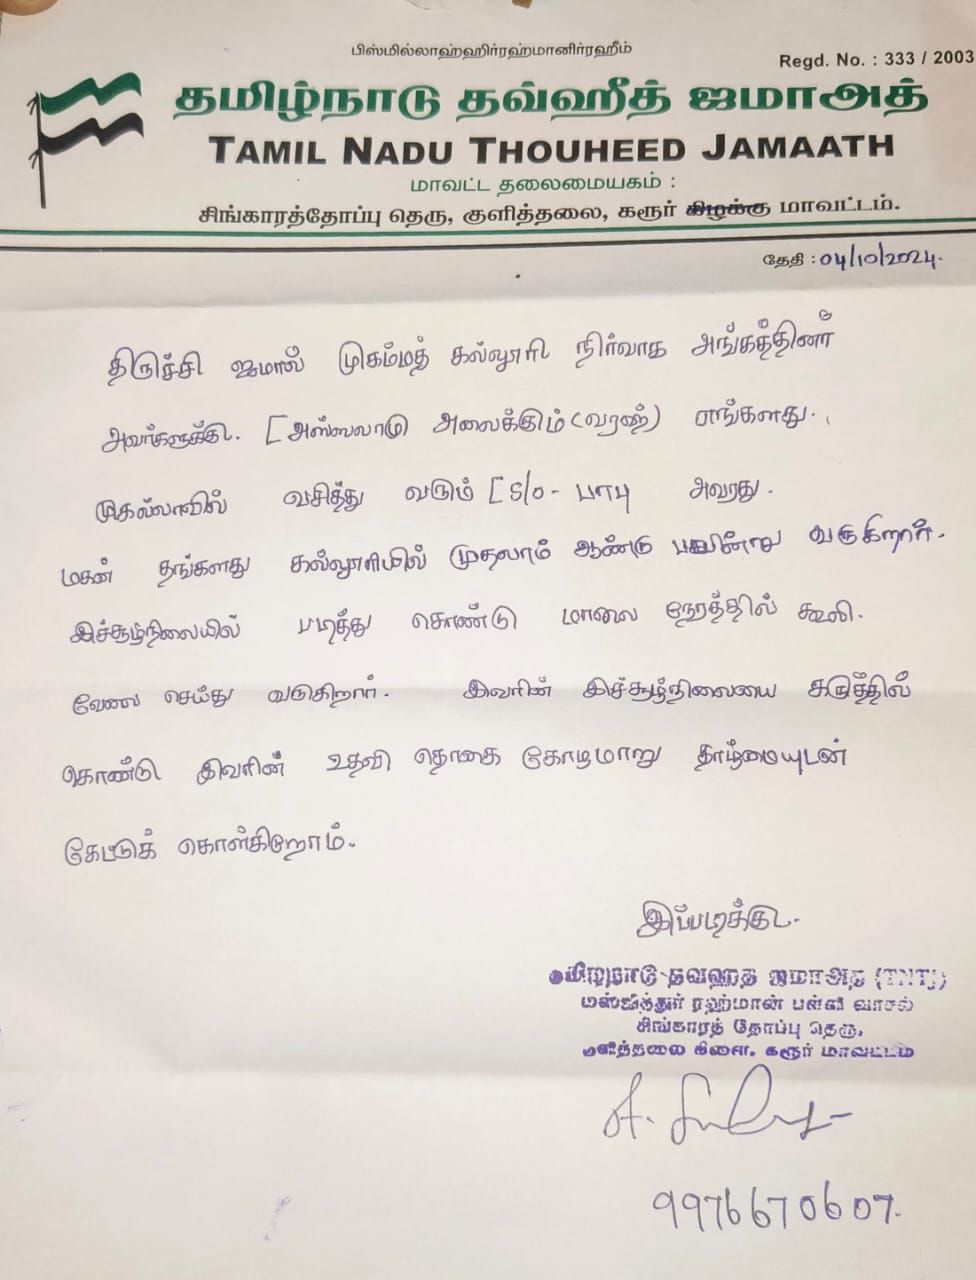 பிஸ்மில்லாஹ்ஹிர்ரஹ்மானிர்ரஹீம்
Regd. No. : 333 / 2003
தமிழ்நாடு தவ்ஹீத் ஜமாஅத்
TAMIL NADU THOUHEED JAMAATH
மாவட்ட தலைமையகம் :
சிங்காரத்தோப்பு தெரு, குளித்தலை, கரூர் கிழக்கு மாவட்டம்.
தேதி : 04/10/2024.
திருச்சி ஜமால் முகம்மத் கல்லூரி நிர்வாக அங்கத்தினர்
அவர்களுக்கு. [அஸ்ஸலாமு அலைக்கும் (வரஹ்) எங்களது.
முகல்லாவில் வசித்து வரும் [S/o - பாபு அவரது.
மகன் தங்களது கல்லூரியில் முதலாம் ஆண்டு பயின்று வருகிறார்.
இச்சூழ்நிலையில் படித்து கொண்டு மாலை நேரத்தில் கூலி.
வேலை செய்து வருகிறார். இவரின் இச்சூழ்நிலையை கருத்தில்
கொண்டு இவரின் உதவி தொகை கோடிமாறு தாழ்மையுடன்
கேட்டுக் கொள்கிறோம்.
இப்படிக்கு.
தமிழ்நாடு தவ்ஹீத் ஜமாஅத் (TNTJ)
மஸ்ஜித்துர் ரஹ்மான் பள்ளி வாசல்
சிங்காரத் தோப்பு தெரு,
குளித்தலை கிளை, கரூர் மாவட்டம்
9976670607.